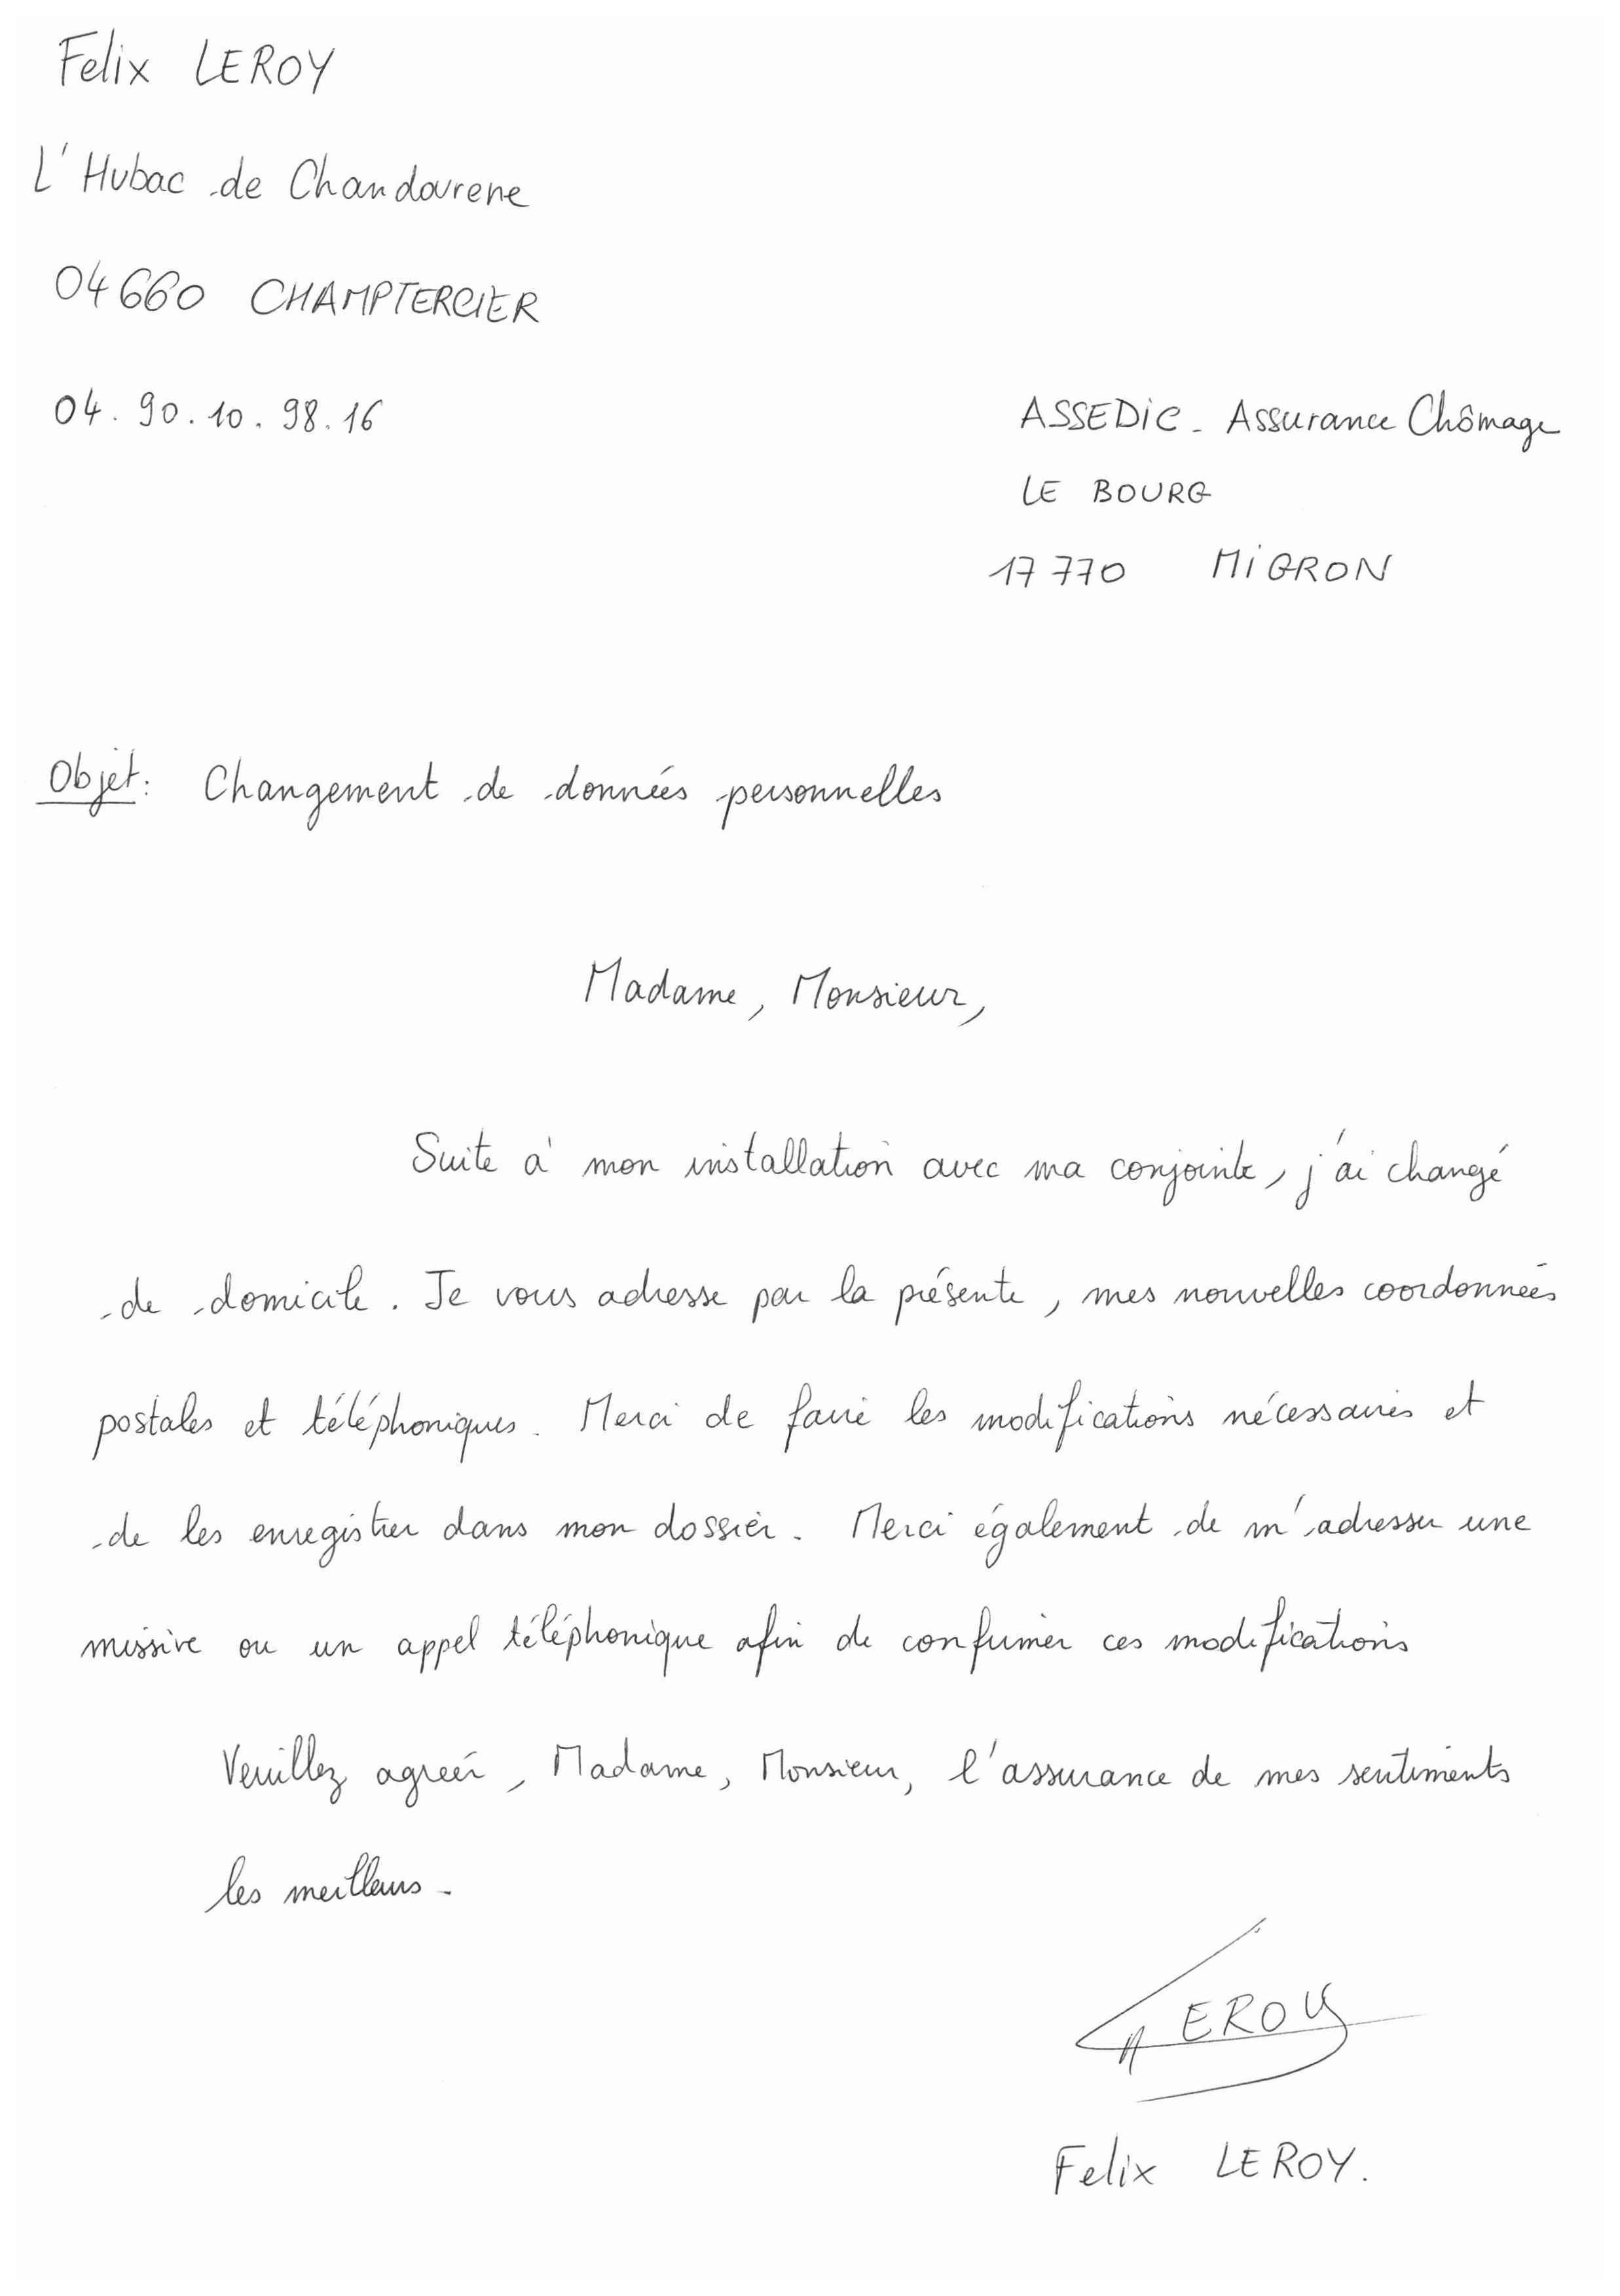 Felix LEROY
L'Hubac de Chandourene
04660 CHAMPTERCIER
04.90.10.98.16
ASSEDIC - Assurance Chômage
LE BOURG
17770 MIGRON
Objet: Changement de données personnelles
Madame, Monsieur,
Suite à mon installation avec ma conjointe, j'ai changé
de domicile. Je vous adresse par la présente, mes nouvelles coordonnées
postales et téléphoniques. Merci de faire les modifications nécessaires et
de les enregistrer dans mon dossier. Merci également de m'adresser une
missive ou un appel téléphonique afin de confirmer ces modifications
Veuillez agréer, Madame, Monsieur, l'assurance de mes sentiments
les meilleurs.
LEROY
Felix LEROY.